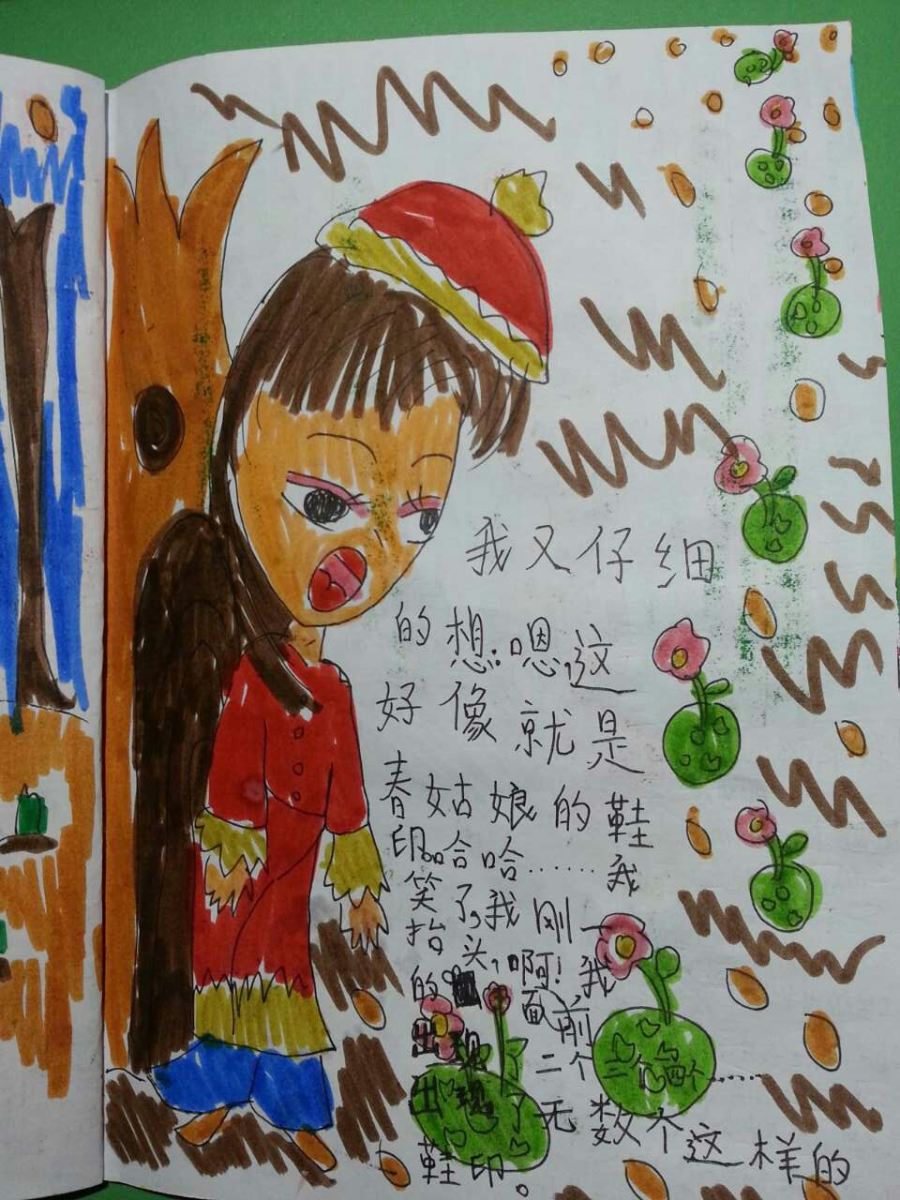 我又仔细
的想.嗯,这
好像就是
春姑娘的鞋
印。哈哈……我
笑了,我刚一
抬头,啊!我
的面前
出现了二个三个四个……
出现了无数个这样的
鞋印。